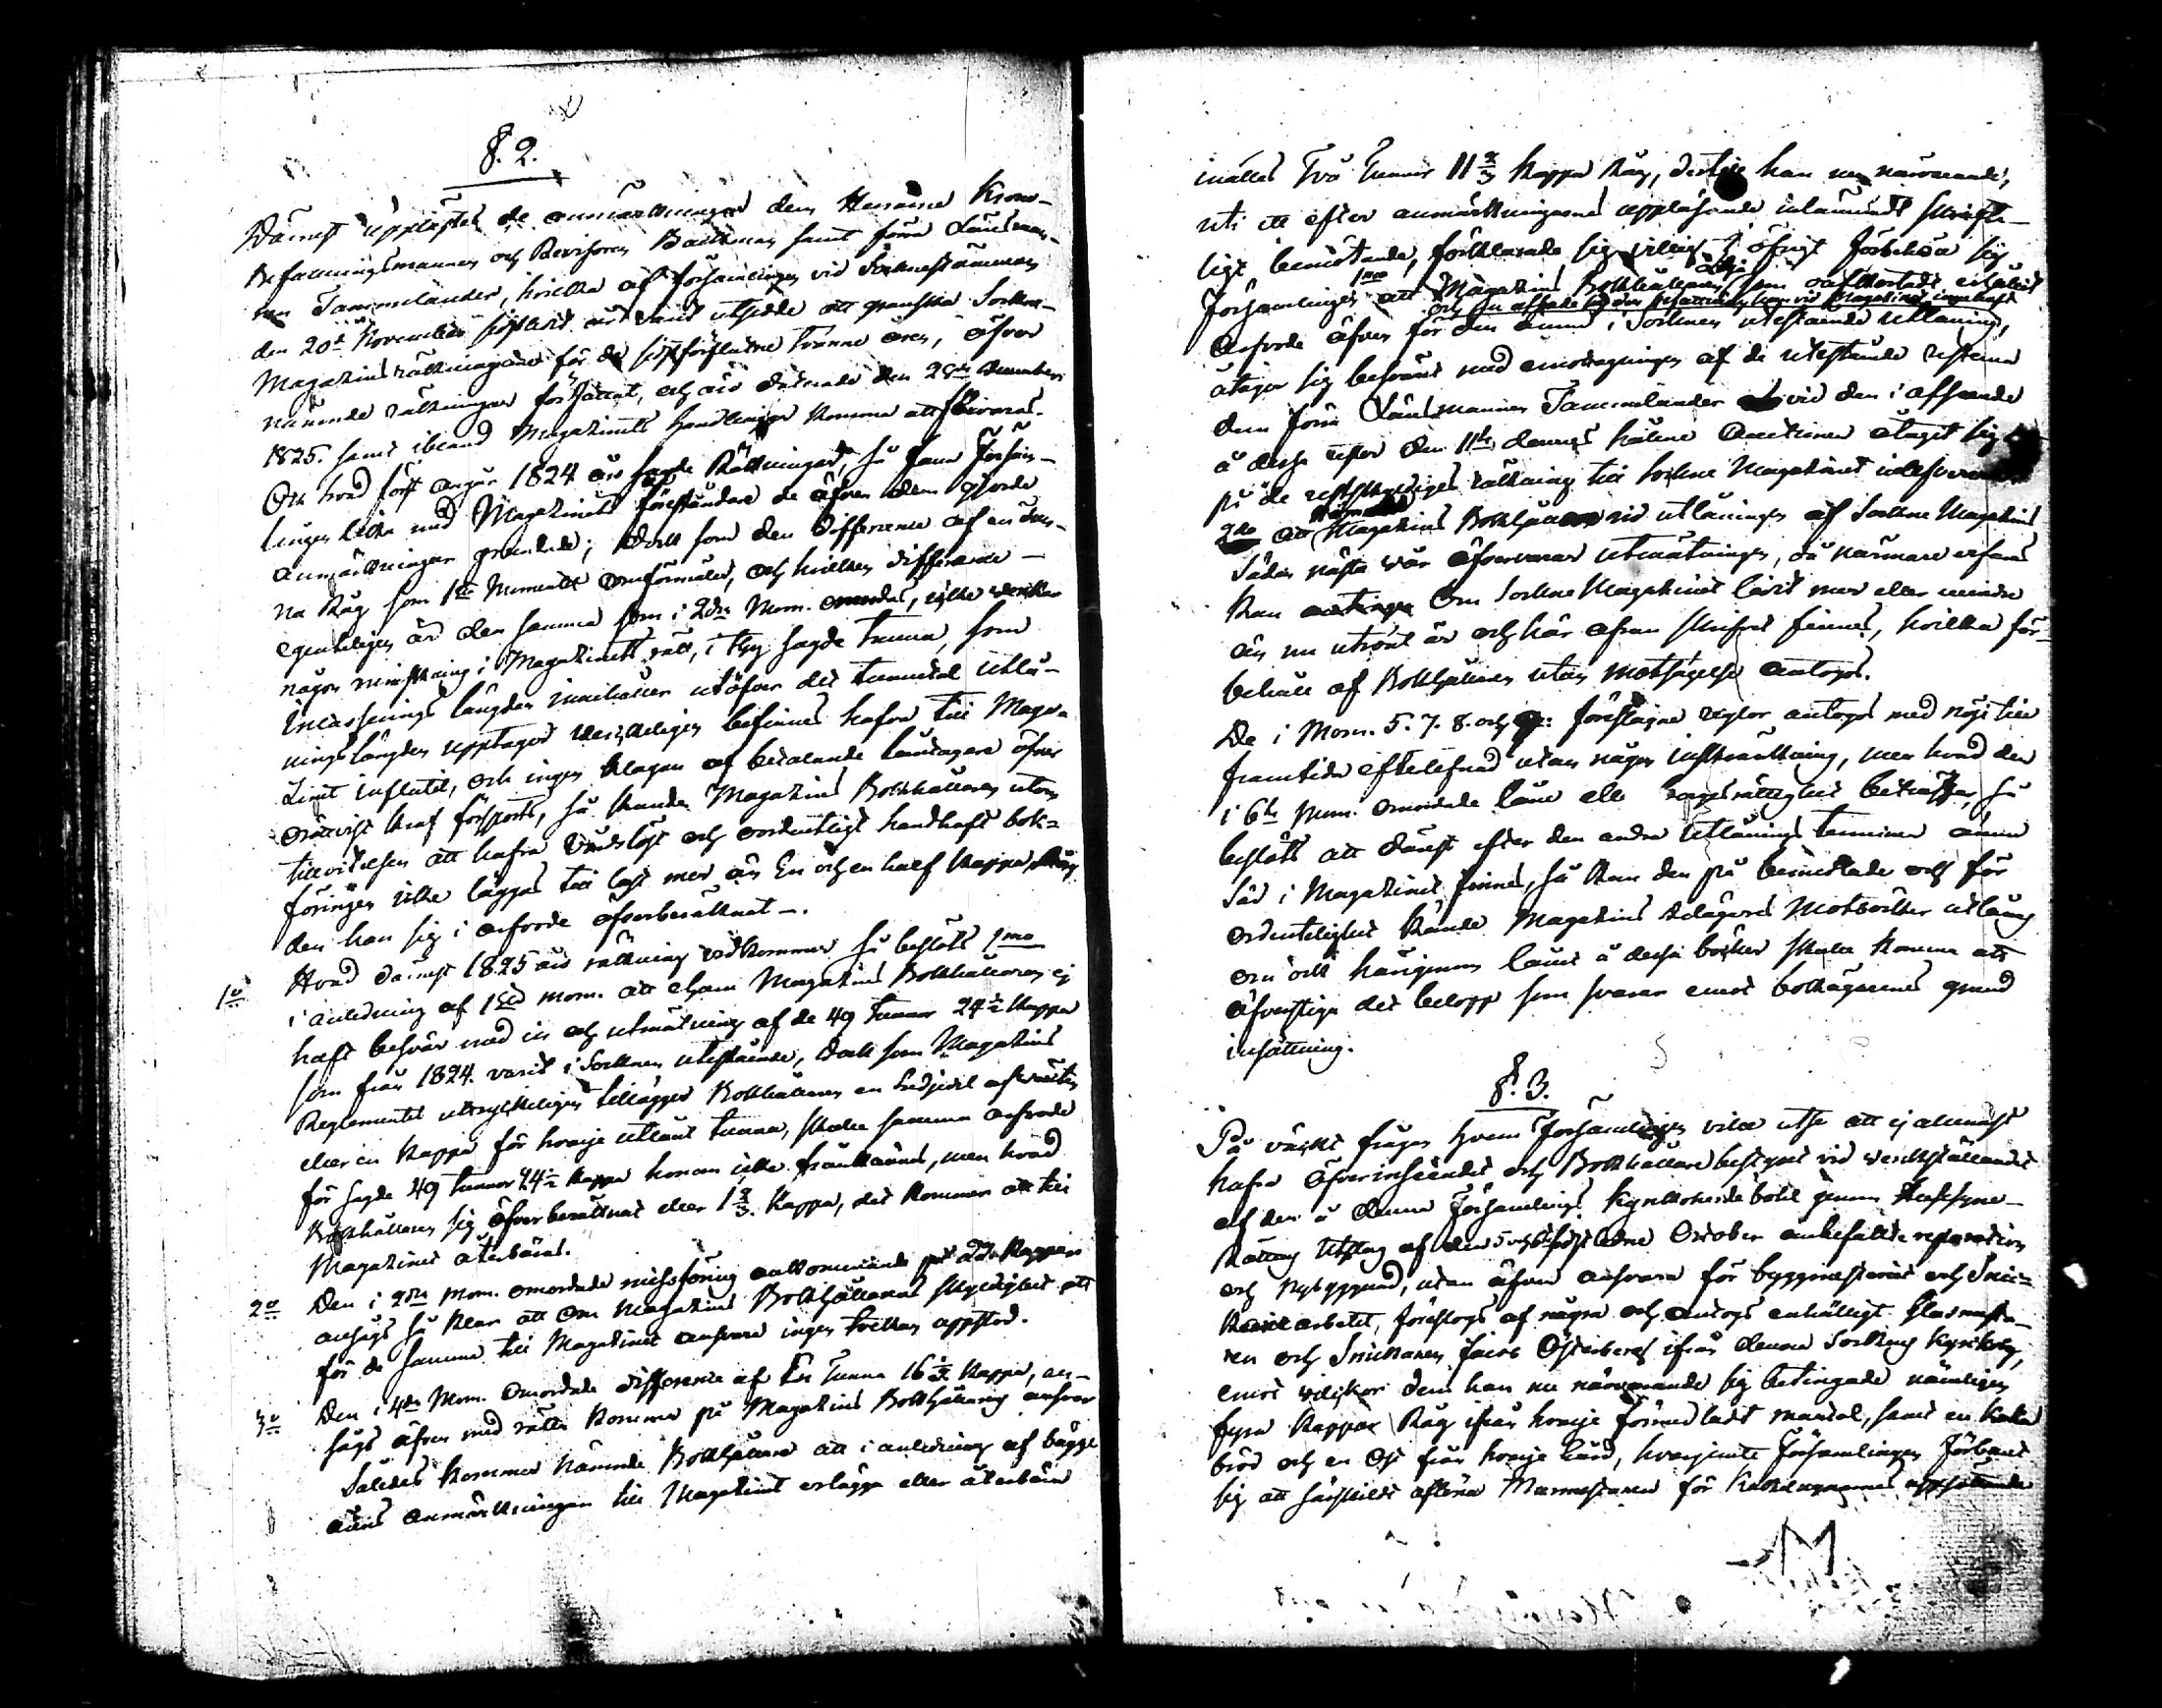 §. 2.
Därnäst upplästes de anmärkningar dem Herrarne Krono-
Befallningsmannen och Revisoren Backman samt förra Länsman-
nen Tammelander, hvilka af församlingen vid Socknestämman
den 20de November sistledit år varit utsedde att granska Sockne-
Magasins räkningarne för de sistförflutne tvenne åren, öfver
nämnde räkningar författat, och äro daterade den 29de December
1825. samt ibland Magasinets handlingar komma att förvaras.
Och hvad först angår 1824 års räkningar, så fann Försam-
lingen lika med Magasinets föreståndare de öfver dem gjorde
anmärkningar grundade; dock som den difference af en tun-
na Råg som 1sta Momentet omförmäler, och hvilken difference
egenteligen är den samma som i 2dra Mom. omordas, icke verkar
någon minskning i Magasinets rätt, i thy sagde tunna, som
Incasserings längden innehåller utöfver det tunnetal utlå-
nings längden upptager verkeligen befinnes hafva till Maga-
zinet influtit, och ingen klagan af betalande låntagare öfver
orättvist kraf försports, så kunde Magasins Bokhållaren utom
tillvitelsen att hafva vårdslöst och oordentligt handhaft bok-
föringen icke läggas till last mer än En och en half kappa Råg
den han sig i arfvode öfverberäknat -.
1o Hvad därnäst 1825 års räkning vidkommer så beslöts 1mo
i anledning af 1sta mom. att ehuru Magasins Bokhållaren ej
haft besvär med in och utmätning af de 49 tunnor 24½ kappa
som från 1824. varit i Socknen utestående, dock som Magasins
Reglementet uttryckeligen tillägger Bokhållaren en tredjedel af räntan
eller en kappa för hvarje utlånt tunna, skulle samma arfvode
för sagde 49 tunnor 24½ kappa honom icke frånkännas, men hvad
Bokhållaren sig öfverberäknat eller 1⅔ kappa, det kommer att till
Magasinet återbäras.
2o Den i 2dra mom. omordade missföring ankommande på 22 kappar
ansågs så klar att om Magasins Bokhållarens skyldighet att
för de samma till Magasinet ansvara ingen tvekan uppstod.
3o Den i 4de Mom. omordade difference af En Tunna 16½ kappa, an-
sågs äfven med rätta komma på Magasins Bokhållarens ansvar
Således kommer nämnde Bokhållare att i anledning af bägge
årens anmärkningar till Magasinet erlägga eller återbära
inalles Två Tunnor 11⅔ kappa Råg, dertill han nu närvarande,
uti ett efter anmärkningarnes uppläsande inlämnadt skrifte-
ligt bemötande, förklarade sig villig. I öfrigt förbehöll sig
Församlingen 1mo att Magasins Bokhållaren
arfvode äfven för den ännu i Socknen utestående utlåning,
åtager sig besväret med emottagningen af de utestående resterna
dem förra Länsmannen Tammelander vid den i afseende
å dessa rester den 11te dennes hållne Auctionen åtagit sig
på de restskyldiges räkning till Sockne Magasinet
2do att Magasins Bokhållaren vid utlåningen af Sockne Magasins
Säden nästa vår öfvervarar utmätningen, då närmare erfaras
kan om Sockne Magasinet lidit mer eller mindre
än nu utrönt är och här ofvan skrifvet finnes, hvilka för-
behåll af Bokhållaren utan motsägelse antogos.
De i Mom. 5. 7. 8. och 9: föreslagne reglor antogos med nöje till
framtida efterlefnad utan någon inskränkning, men hvad den
i 6te Mom. omordade låne eller rättighet beträffar, så
beslöts att därest efter den andra Utlånings terminen ännu
Säd i Magasinet finnes, så kan den på bemedlade och för
ordentelighet kände Magasins delägares Motböcker utlånas
om ock härigenom lånet å dessa böcker skulle komma att
öfverstiga det belopp som svarar emot bokägarens grund
insättning.
§. 3.
På väckt fråga hvem Församlingen ville utse att ej allenast
hafva öfverinseendet och Bokhållare bestyret vid verkställandet
af den å denna Församlings Kyrkoherde bohl genom Husesyns-
Rättens Utslag af den 5 och 6 sistledne October anbefallte reparation
och Nybyggnad, utan äfven ansvara för byggmästeriet och Snic-
keri arbetet, föreslogs af några och antogs enhälligt Glasmästa-
ren och Snickaren Jacob Österberg ifrån denna Sockens Kyrkoby,
emot vilkor dem han nu närvarande sig betingade nämligen
fyra kappar Råg ifrån hvarje förmedladt mantal, samt en kaka
bröd och en Ost från hvarje Gård, hvarjemte Församlingen förband
sig att särskildt aflöna Murmästaren för Kakelugnarnes uppsättande
M